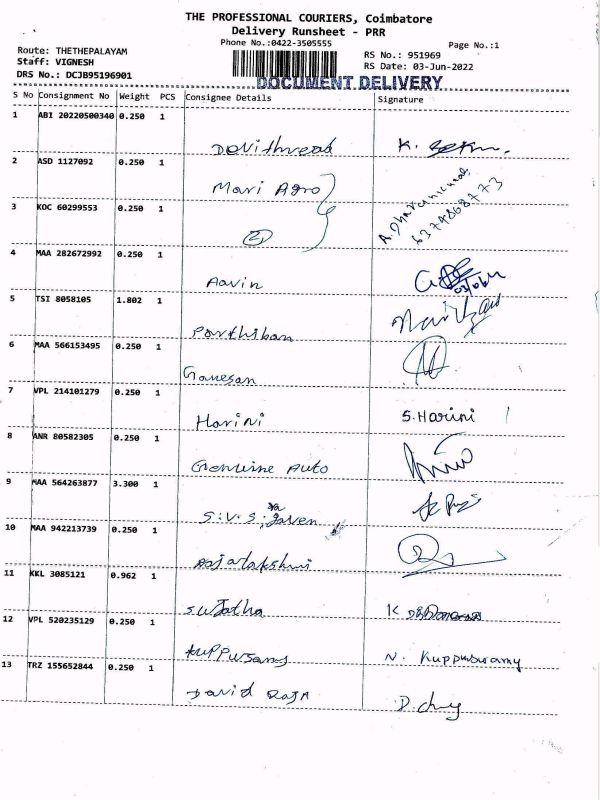 THE PROFESSIONAL COURIERS, Coimbatore
Delivery Runsheet - PRR
Phone No.:0422-3505555
Page No.:1
Route: THETHEPALAYAM
Staff: VIGNESH
DRS No.: DCJB95196901
RS No.: 951969
RS Date: 03-Jun-2022
DOCUMENT DELIVERY
S No Consignment No Weight PCS Consignee Details Signature
1 ABI 20220500340 0.250 1
K.
2 ASD 1127092 0.250 1
Mari Agro
3 KOC 60299553 0.250 1
6374868773
(2)
4 MAA 282672992 0.250 1
Aavin
5 TSI 8058105 1.802 1
Parthiban
6 MAA 566153495 0.250 1
Ganesan
7 VPL 214101279 0.250 1
Harini S.Harini
8 ANR 80582305 0.250 1
Genuine Auto
9 MAA 564263877 3.300 1
S.V.S.
10 MAA 942213739 0.250 1
Rajalakshmi
11 KKL 3085121 0.962 1
Sujatha K
12 VPL 520235129 0.250 1
Kuppusamy N. Kuppuswamy
13 TRZ 155652844 0.250 1
David Raja D.